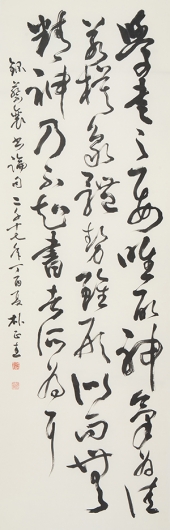 學書之要唯取神氣為佳
若模象體勢雖形似而無
精神乃不知書者所為耳
錄蔡襄書論句 二〇十七年丁酉夏 朴正